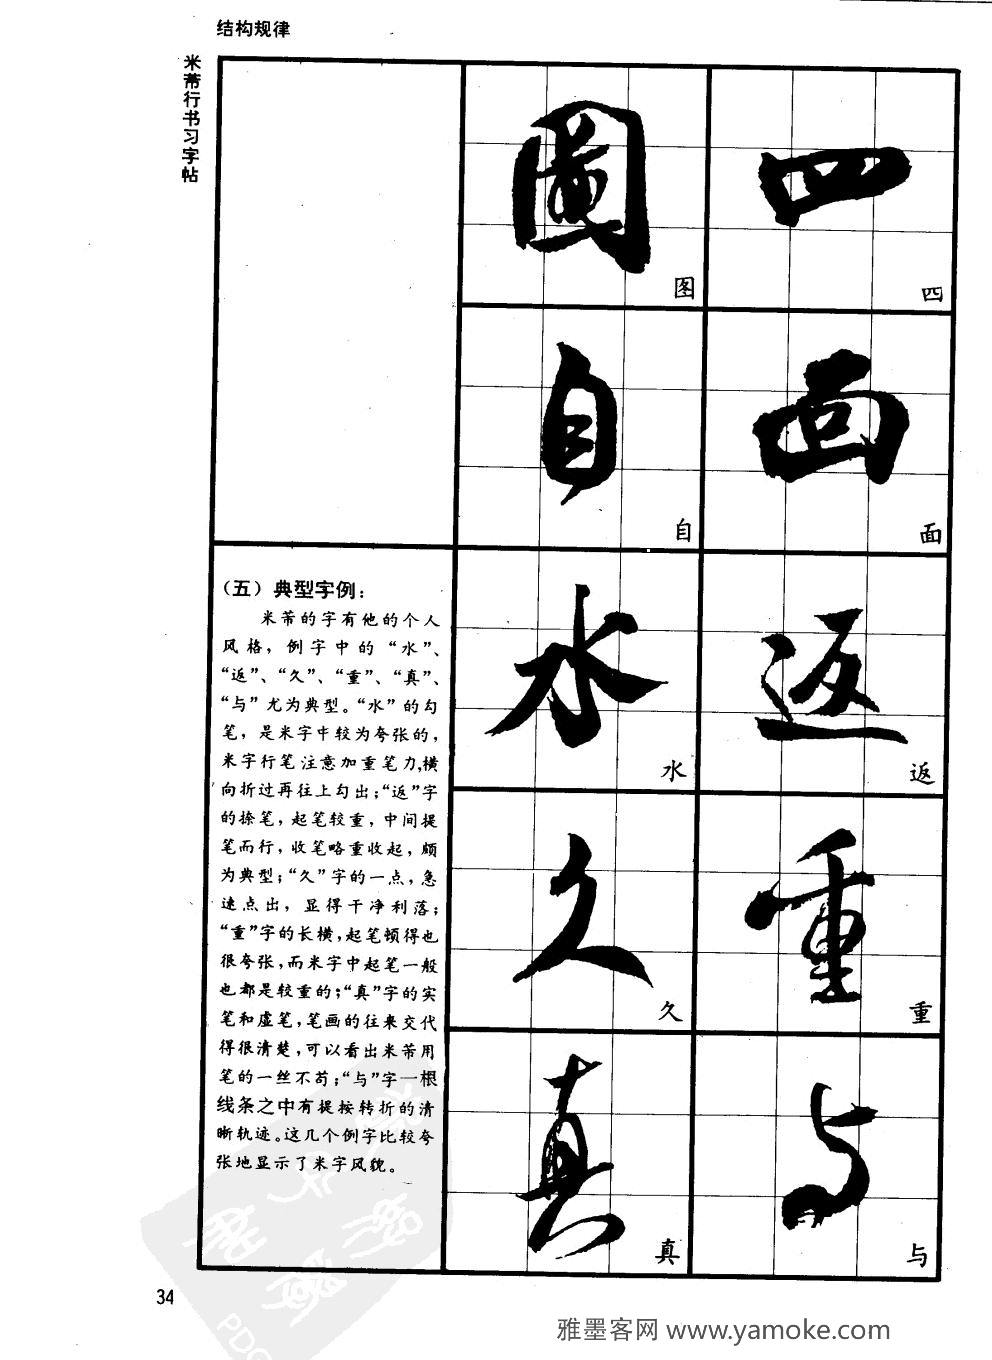 结构规律
米芾行书习字帖
圖
图
四
四
自
自
面
面
(五) 典型字例：
米芾的字有他的个人
风格，例字中的“水”、
“返”、“久”、“重”、“真”、
“与”尤为典型。“水”的勾
笔，是米字中较为夸张的，
米字行笔注意加重笔力,横
向折过再往上勾出；“返”字
的捺笔，起笔较重，中间提
笔而行，收笔略重收起，颇
为典型；“久”字的一点，急
速点出，显得干净利落；
“重”字的长横，起笔顿得也
很夸张，而米字中起笔一般
也都是较重的；“真”字的实
笔和虚笔，笔画的往来交代
得很清楚，可以看出米芾用
笔的一丝不苟；“与”字一根
线条之中有提按转折的清
晰轨迹。这几个例字比较夸
张地显示了米字风貌。
水
水
返
返
久
久
重
重
真
真
与
与
34
雅墨客网 www.yamoke.com